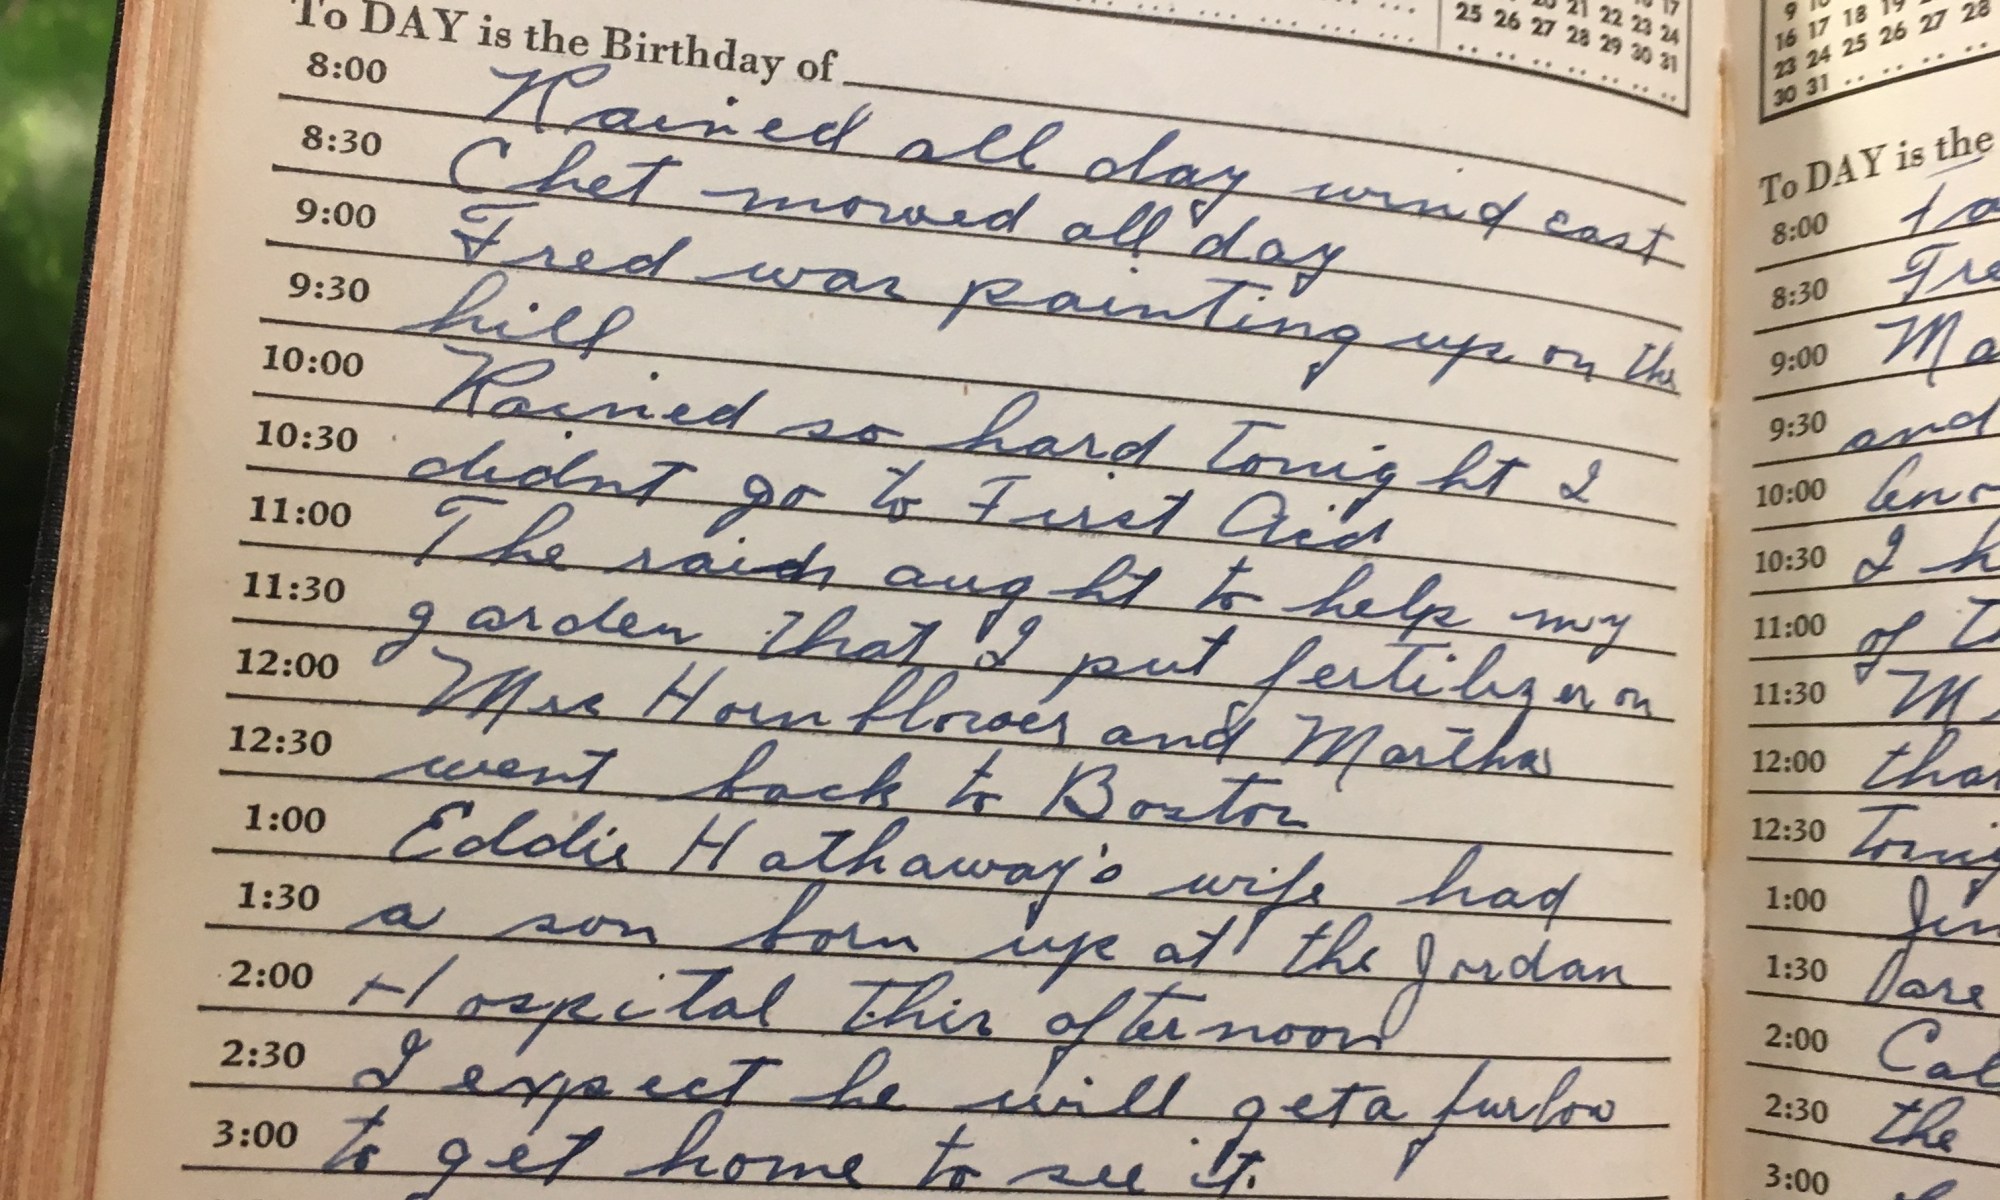 20 21 22 23 24
25 26 27 28 29 30 31
To DAY is the Birthday of
8:00 Rained all day wind east
8:30 Chet mowed all day
9:00 Fred was painting up on the
9:30 hill
10:00 Rained so hard tonight I
10:30 didnt go to First Aid
11:00 The rain aught to help my
11:30 garden that I put fertilizer on
12:00 Mrs Hornblower and Martha
12:30 went back to Boston
1:00 Eddie Hathaway's wife had
1:30 a son born up at the Jordan
2:00 Hospital this afternoon
2:30 I expect he will get a furlow
3:00 to get home to see it.
16 17 18 19
23 24 25 26 27 28
30 31
To DAY is the
8:00
8:30 Fre
9:00 Ma
9:30 and
10:00
10:30 I h
11:00 of
11:30 M
12:00 tha
12:30
1:00
1:30
2:00
2:30 the
3:00